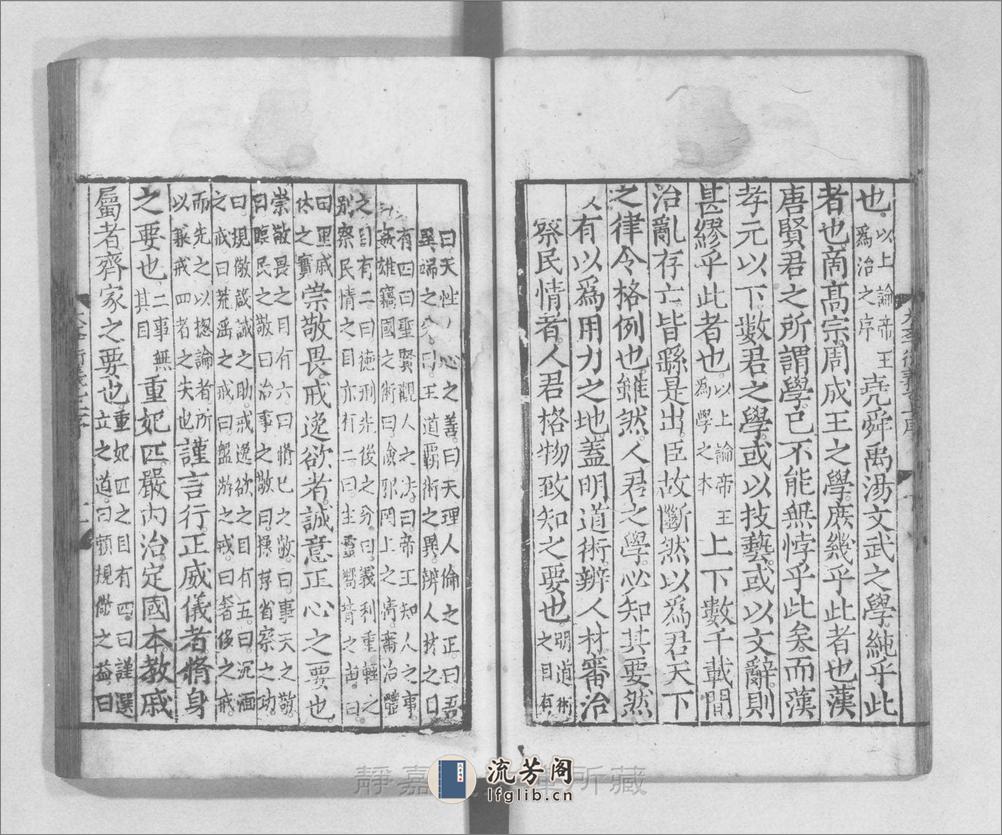 也以上論帝王
爲治之序堯舜禹湯文武之學純乎此
者也商髙宗周成王之學庻幾乎此者也漢
唐賢君之所謂學已不能無悖乎此矣而漢
孝元以下數君之學或以技藝或以文辭則
甚繆乎此者也以上論帝王
爲學之本上下數千載間
治亂存亡皆繇是出臣故斷然以爲君天下
之律令格例也雖然人君之學必知其要然
以有以爲用力之地蓋明道術辨人材審治
察民情者人君格物致知之要也明道術
之目有
曰天性人心之善曰天理人倫之正曰吾
異端之 曰王道霸術之異辨人材之目
有四曰聖賢觀人之法曰帝王知人之事
姦雄竊國之術曰憸邪罔上之情審治體
之目有二曰德刑先後之分曰義利重輕之
别察民情之目亦有二曰生靈嚮背之由曰
田里戚
休之實崇敬畏戒逸欲者誠意正心之要也
崇敬畏之目有六曰脩己之敬曰事天之敬
曰臨民之敬曰治事之敬曰操存省察之功
曰規儆箴誡之助戒逸欲之目有五曰沉湎
之戒曰荒淫之戒曰盤游之戒曰奢侈之戒
而先之以揔論者所
以兼戒四者之失也謹言行正威儀者脩身
之要也二事無
其目重妃匹嚴內治定國本教戚
屬者齊家之要也重妃匹之目有四曰謹選
立之道曰賴規儆之益曰
大學衍義序
靜嘉 所藏
流芳阁
lfglib.cn